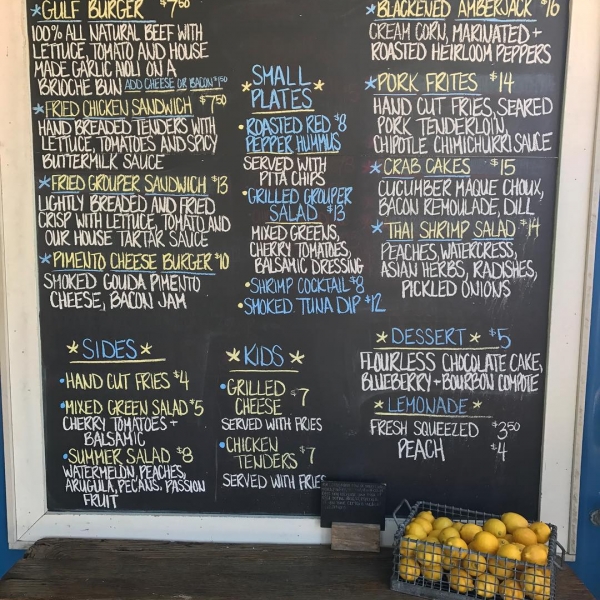 GULF BURGER $7.50
100% ALL NATURAL BEEF WITH
LETTUCE, TOMATO AND HOUSE
MADE GARLIC AIOLI ON A
BRIOCHE BUN ADD CHEESE OR BACON $1.50
FRIED CHICKEN SANDWICH $7.50
HAND BREADED TENDERS WITH
LETTUCE, TOMATOES AND SPICY
BUTTERMILK SAUCE
FRIED GROUPER SANDWICH $13
LIGHTLY BREADED AND FRIED
CRISP WITH LETTUCE, TOMATO AND
OUR HOUSE TARTAR SAUCE
PIMENTO CHEESE BURGER $10
SMOKED GOUDA PIMENTO
CHEESE, BACON JAM
SMALL
PLATES
ROASTED RED $8
PEPPER HUMMUS
SERVED WITH
PITA CHIPS
GRILLED GROUPER
SALAD $13
MIXED GREENS,
CHERRY TOMATOES,
BALSAMIC DRESSING
SHRIMP COCKTAIL $8
SMOKED TUNA DIP $12
BLACKENED AMBERJACK $16
CREAM CORN, MARINATED +
ROASTED HEIRLOOM PEPPERS
PORK FRITES $14
HAND CUT FRIES, SEARED
PORK TENDERLOIN,
CHIPOTLE CHIMICHURRI SAUCE
CRAB CAKES $15
CUCUMBER MAQUE CHOUX,
BACON REMOULADE, DILL
THAI SHRIMP SALAD $14
PEACHES, WATERCRESS,
ASIAN HERBS, RADISHES,
PICKLED ONIONS
SIDES
HAND CUT FRIES $4
MIXED GREEN SALAD $5
CHERRY TOMATOES +
BALSAMIC
SUMMER SALAD $8
WATERMELON, PEACHES,
ARUGULA, PECANS, PASSION
FRUIT
KIDS
GRILLED $7
CHEESE
SERVED WITH FRIES
CHICKEN
TENDERS $7
SERVED WITH FRIES
DESSERT $5
FLOURLESS CHOCOLATE CAKE,
BLUEBERRY + BOURBON COMPOTE
LEMONADE
FRESH SQUEEZED $3.50
PEACH $4